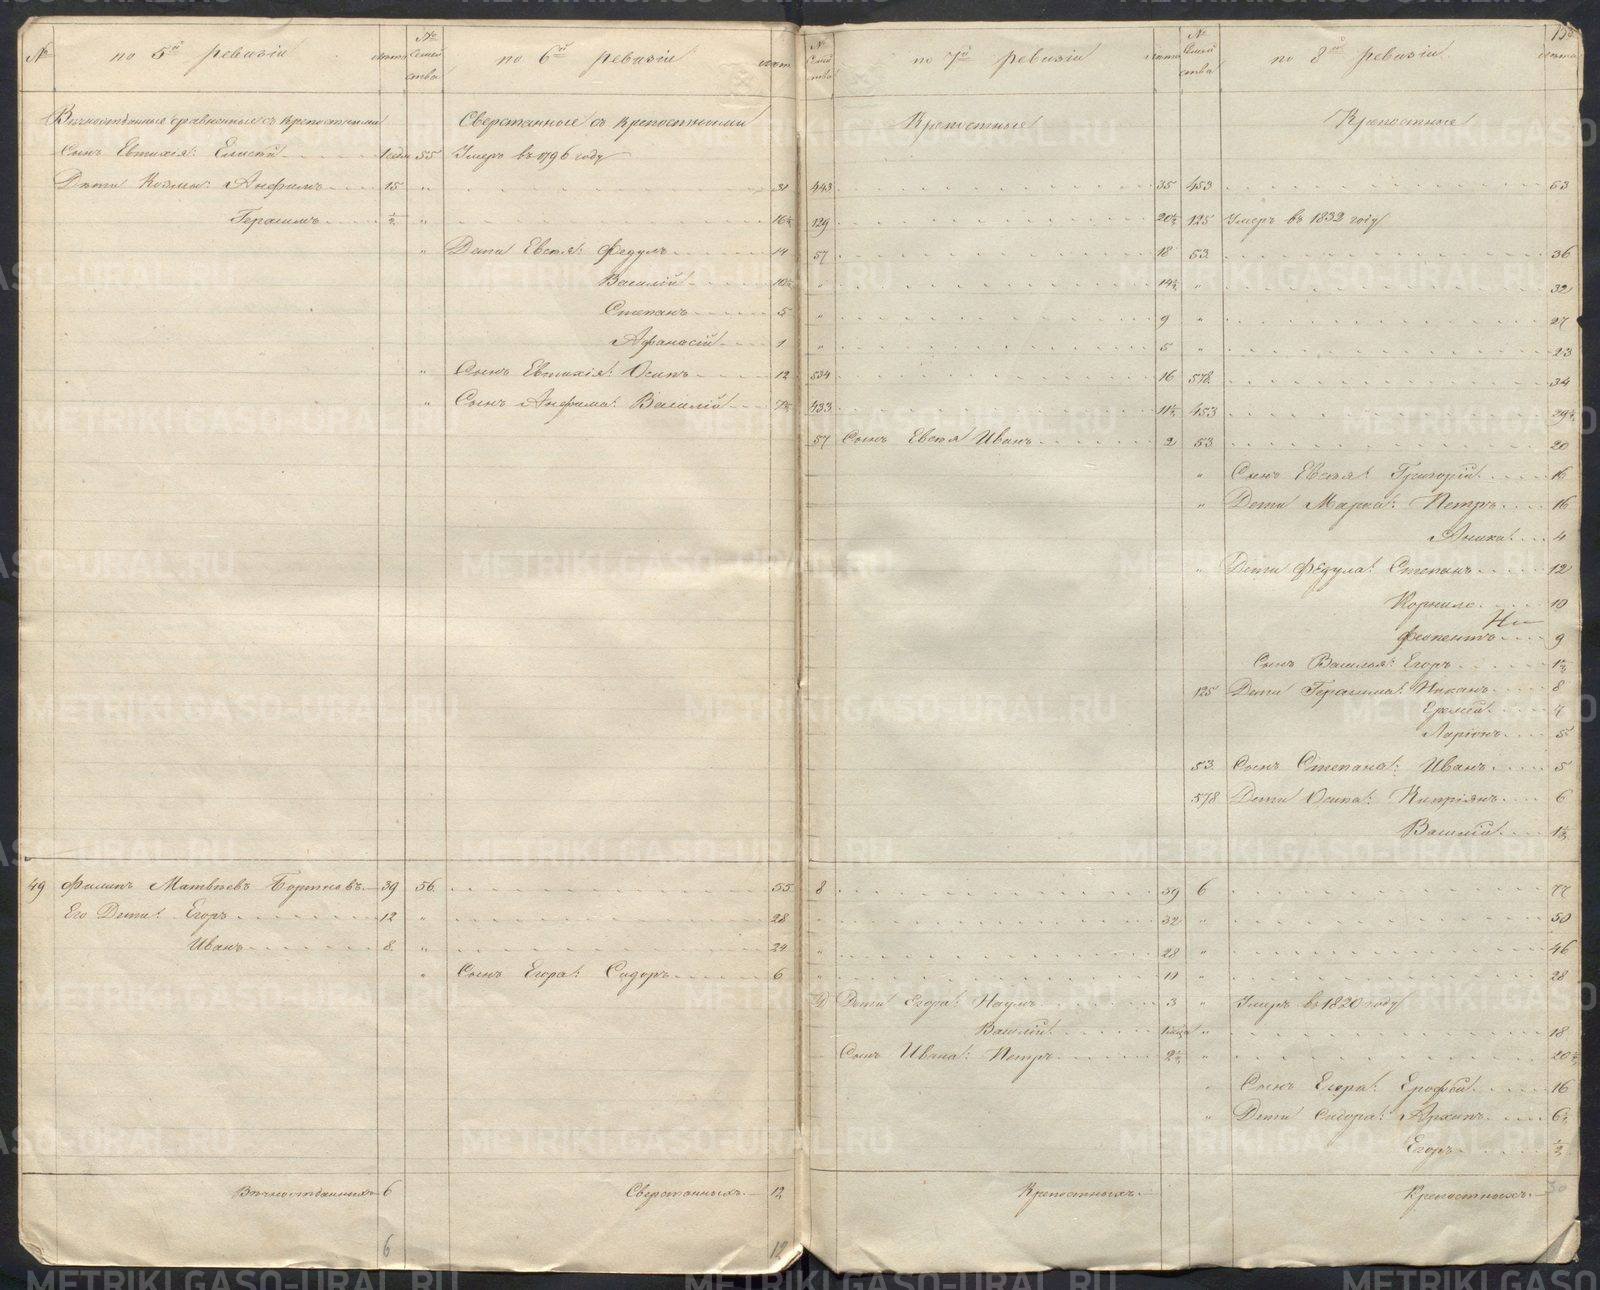 № по 5й ревизіи лѣта № Семей ства по 6й ревизіи лѣта
Вѣчноотданные сравненные съ крѣпостными Сверстанные съ крѣпостными
Сынъ Евтихія: Елисей 1 55 Умеръ въ 1796 году
Дѣти Козмы: Анфимъ 15 " 31
Герасимъ ½ " 16½
" Дети Евстя: Федулъ 14
Василій 10½
Степанъ 5
Афанасій 1
" Сынъ Евтихія: Осипъ 12
" Сынъ Анфима: Василій 7½
49 Филипъ Матвѣевъ Бортновъ 39 56 55
Его Дети: Егоръ 12 " 28
Иванъ 8 " 24
" Сынъ Егора: Сидоръ 6
Вѣчноотданныхъ 6 Сверстанныхъ 12
6 12
№ Семей ства по 7й ревизіи лѣта № Семей ства по 8й ревизіи лѣта
Крѣпостные Крѣпостные
443 35 453 63
129 20½ 125 Умеръ въ 1832 году
57 18 53 36
" 14½ " 32
" 9 " 27
" 5 " 23
534 16 578 34
433 11½ 453 29½
57 Сынъ Евстя Иванъ 2 53 20
" Сынъ Евстя: Григорій 16
" Дети Марка: Петръ 16
Аника 4
" Дети Федула: Степанъ 12
Корнило 10
Феопентъ 9
Сынъ Василья: Егоръ 1½
125 Дети Герасима: Никанъ 8
Еремей 7
Ларіонъ 5
53 Сынъ Степана: Иванъ 5
578 Дети Осипа: Кипріянъ 6
Василій 1½
8 59 6 77
" 32 " 50
" 28 " 46
" 10 " 28
Дети Егора: Наумъ 3 " Умеръ въ 1820 году
Василій " 18
Сынъ Ивана: Петръ 2½ " 20½
" Сынъ Егора: Ерофей 16
" Дети Сидора: Архипъ 6½
Егоръ ½
Крѣпостныхъ Крѣпостныхъ 30
METRIKI.GASO-URAL.RU